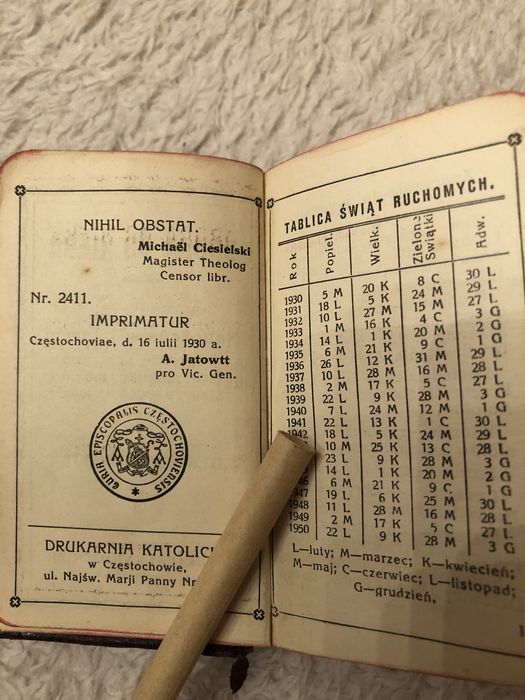 NIHIL OBSTAT.
Michaël Ciesielski
Magister Theolog
Censor libr.
Nr. 2411.
IMPRIMATUR
Częstochoviae, d. 16 iulii 1930 a.
A. Jatowtt
pro Vic. Gen.
CURIA EPISCOPALIS CZĘSTOCHOVIENSIS
DRUKARNIA KATOLIC
w Częstochowie,
ul. Najśw. Marji Panny Nr
TABLICA ŚWIĄT RUCHOMYCH.
Rok Popiel. Wielk. Zielone Świątki Adw.
1930 5 M 20 K 8 C 30 L
1931 18 L 5 K 24 M 29 L
1932 10 L 27 M 15 M 27 L
1933 1 M 16 K 4 C 3 G
1934 14 L 1 K 20 M 2 G
1935 6 M 21 K 9 C 1 G
1936 26 L 12 K 31 M 29 L
1937 10 L 28 M 16 M 28 L
1938 2 M 17 K 5 C 27 L
1939 22 L 9 K 28 M 3 G
1940 7 L 24 M 12 M 1 G
1941 22 L 13 K 1 C 30 L
1942 18 L 5 K 24 M 29 L
10 M 25 K 13 C 28 L
23 L 9 K 28 M 3 G
14 L 1 K 20 M 2 G
46 6 M 21 K 9 C 1 G
947 19 L 6 K 25 M 30 L
1948 11 L 28 M 16 M 28 L
1949 2 M 17 K 5 C 27 L
1950 22 L 9 K 28 M 3 G
L—luty; M—marzec; K—kwiecień;
M—maj; C—czerwiec; L—listopad;
G—grudzień.